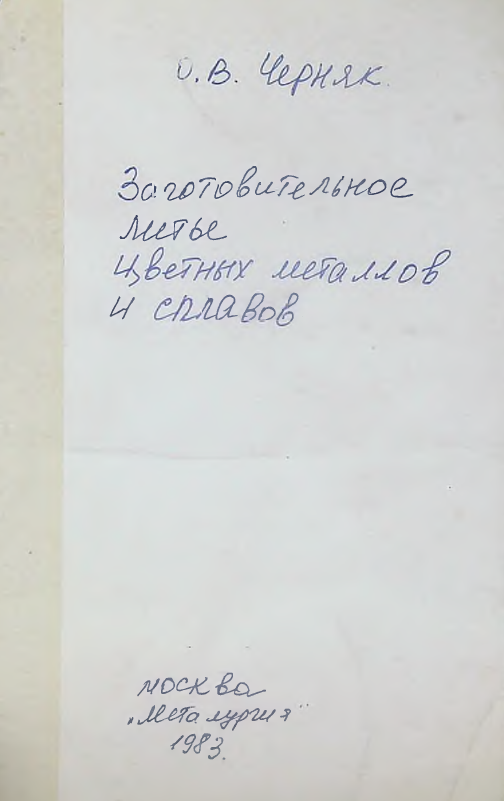 О.В. Черняк
Заготовительное
литье
цветных металлов
и сплавов
москва
„Металургия"
1983.